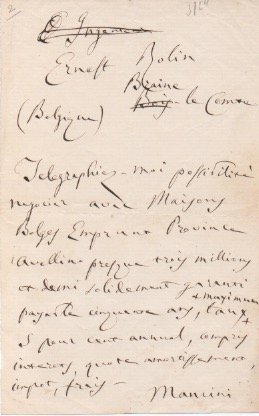 2
Ernest Bolin
Braine
le Comte
(Belgique)
Telegraphiez-moi possibilité
negocier avec Maisons
Belges Emprunt Province
Avellino presque trois millions
et demi solidement garanti
payable cinquante ans, taux
+ maximum +
5 pour cent annuel, compris
interets, quote amortissement,
impot, frais -
Mancini